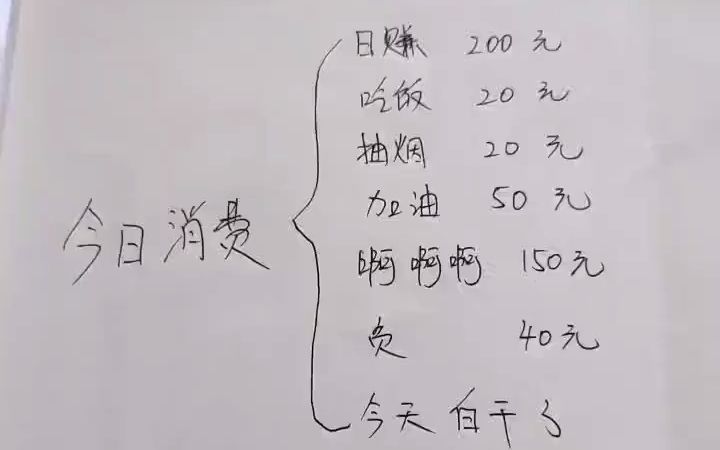 今日消费
日赚 200元
吃饭 20元
抽烟 20元
加油 50元
啊啊啊 150元
负 40元
今天白干了